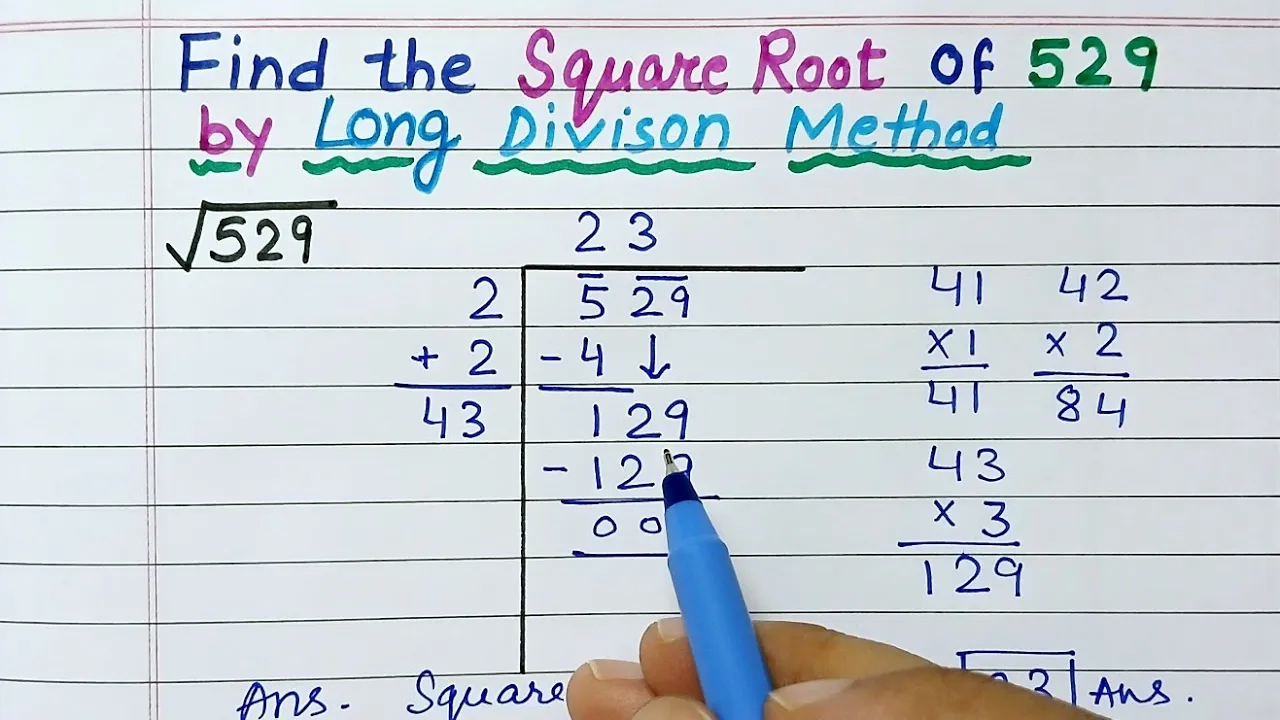 Find the Square Root of 529
by Long Divison Method
√529
23
2
5 29
+ 2
- 4 ↓
43
129
- 12
00
41
× 1
41
42
× 2
84
43
× 3
129
Ans. Square
Ans.